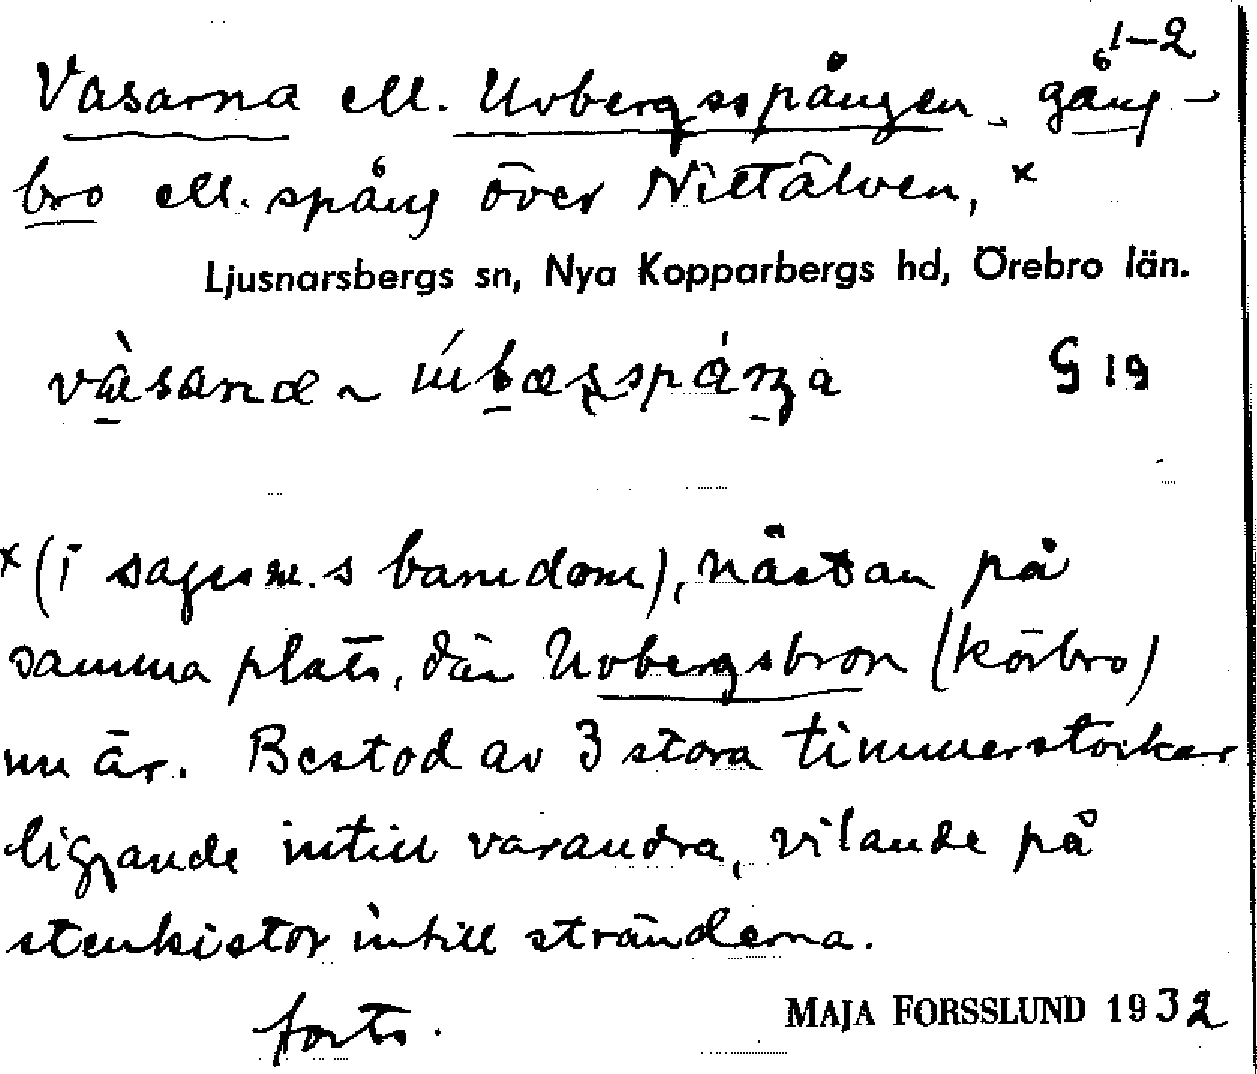 1-2
Vasarna ell. Uvbergsspången, gång-
bro ell. spång över Nittälven, x
Ljusnarsbergs sn, Nya Kopparbergs hd, Örebro län.
G 19
x (i sagesm.s barndom), nästan på
samma plats, där Uvbergsbron (körbro)
nu är. Bestod av 3 stora timmerstockar
liggande intill varandra, vilande på
stenkistor intill stränderna.
forts.
MAJA FORSSLUND 1932